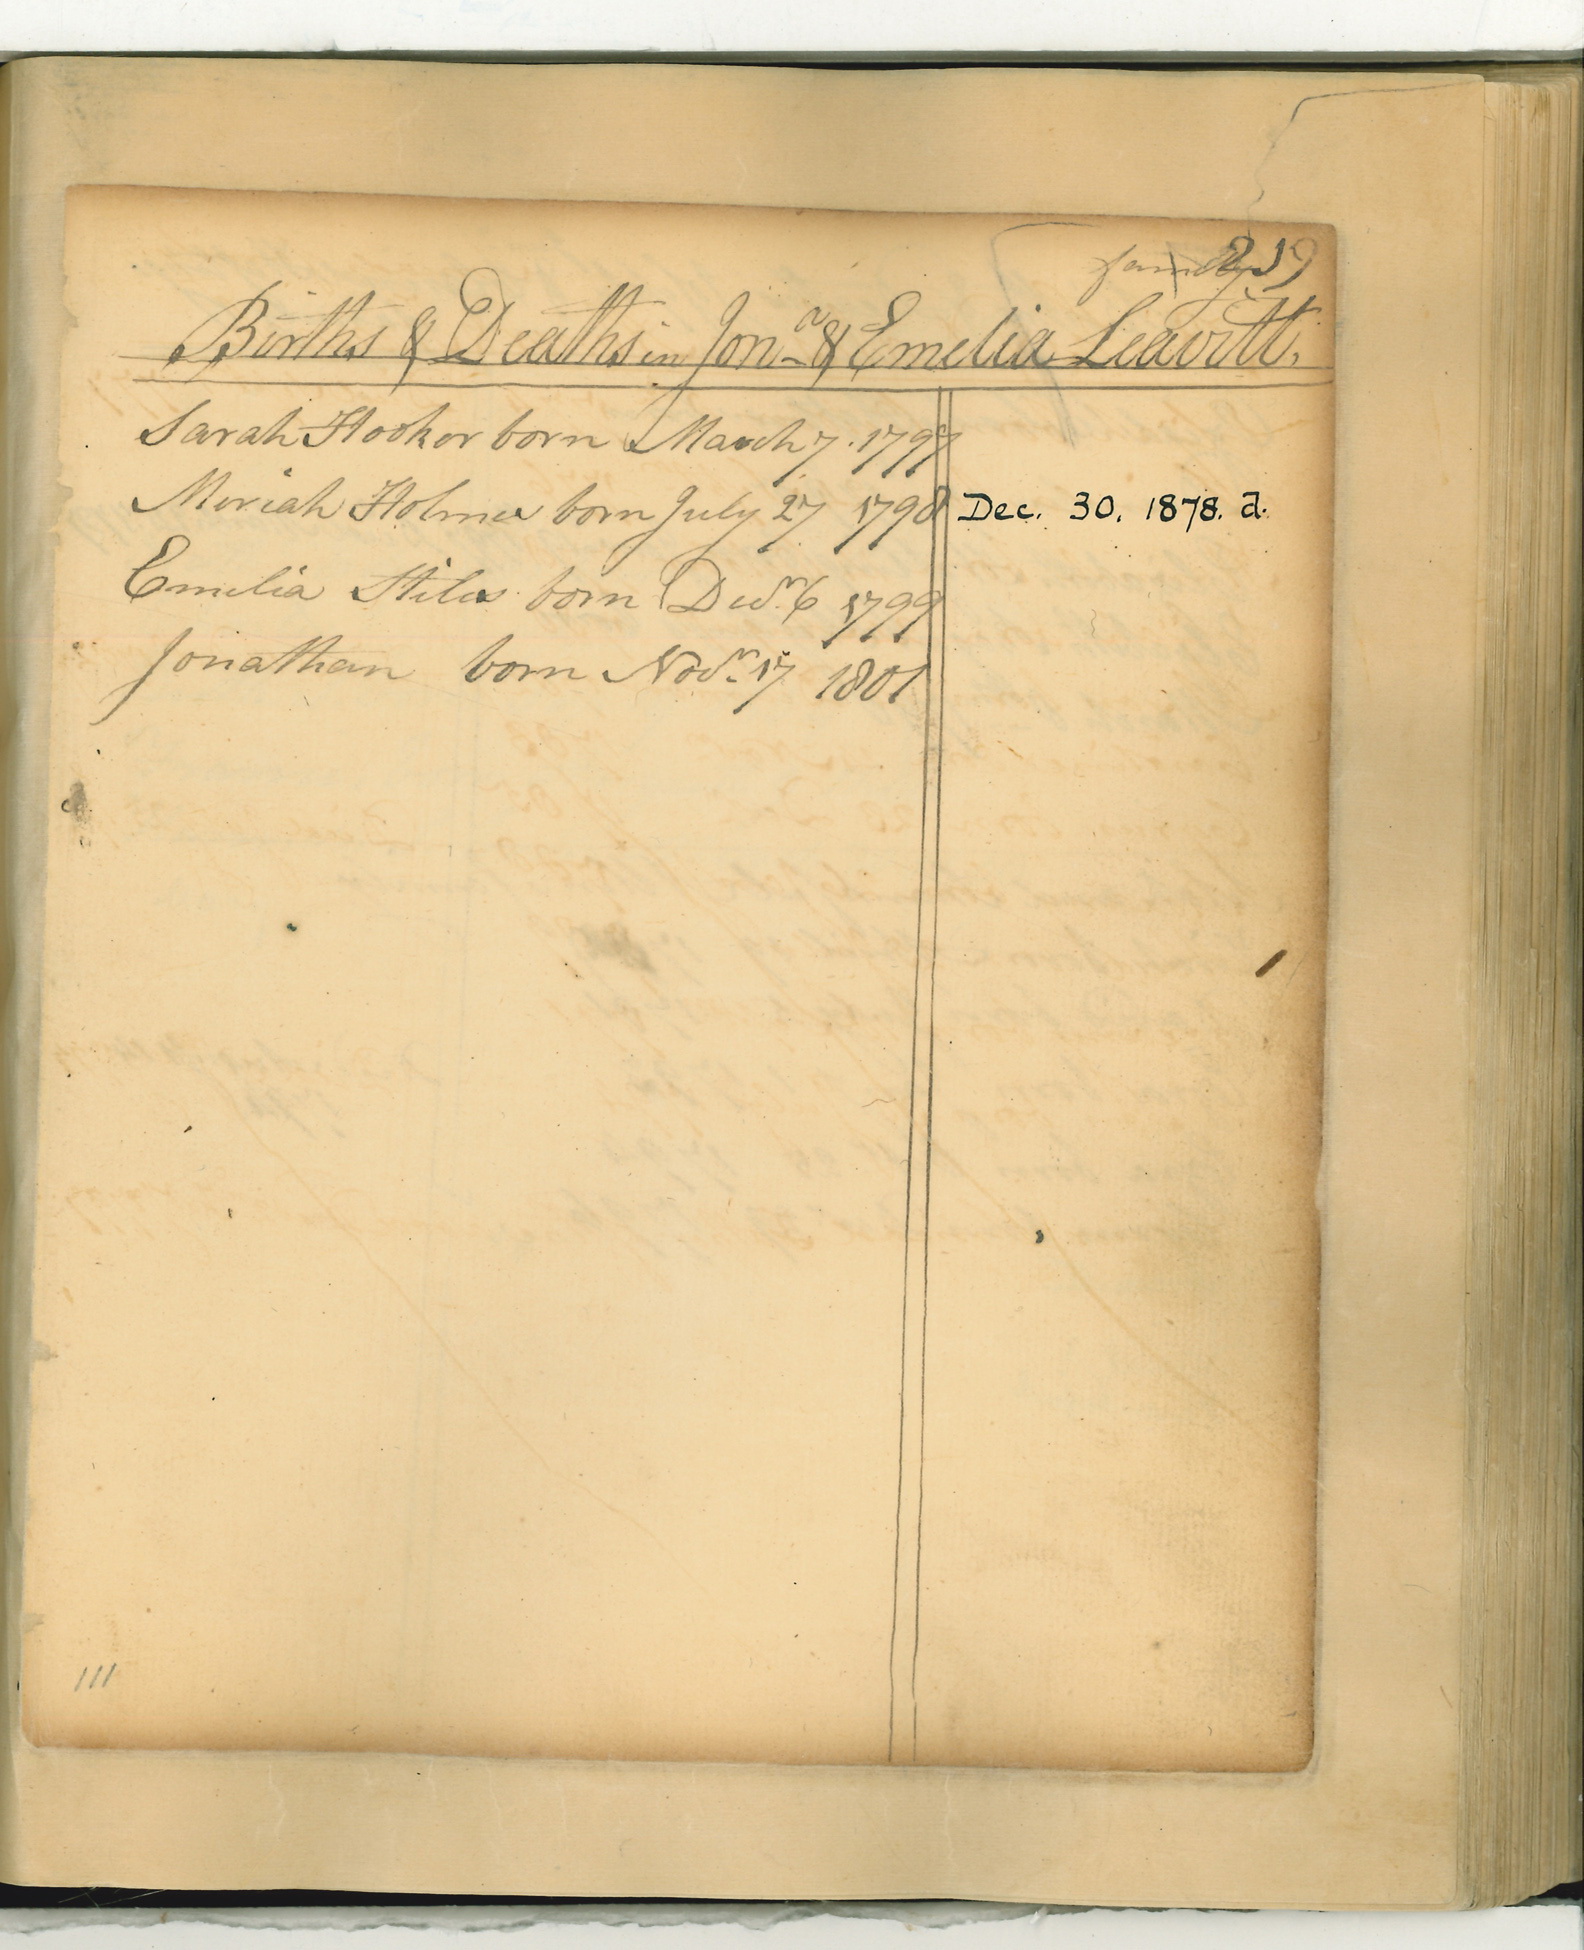 219
family
Births & Deaths in Jonn. & Emelia Leavitt.
Sarah Hooker born March 7. 1797
Meriah Holmes born July 27 1798 Dec. 30. 1878. d.
Emelia Stiles born Decr. 6 1799
Jonathan born Novr. 17 1801
111